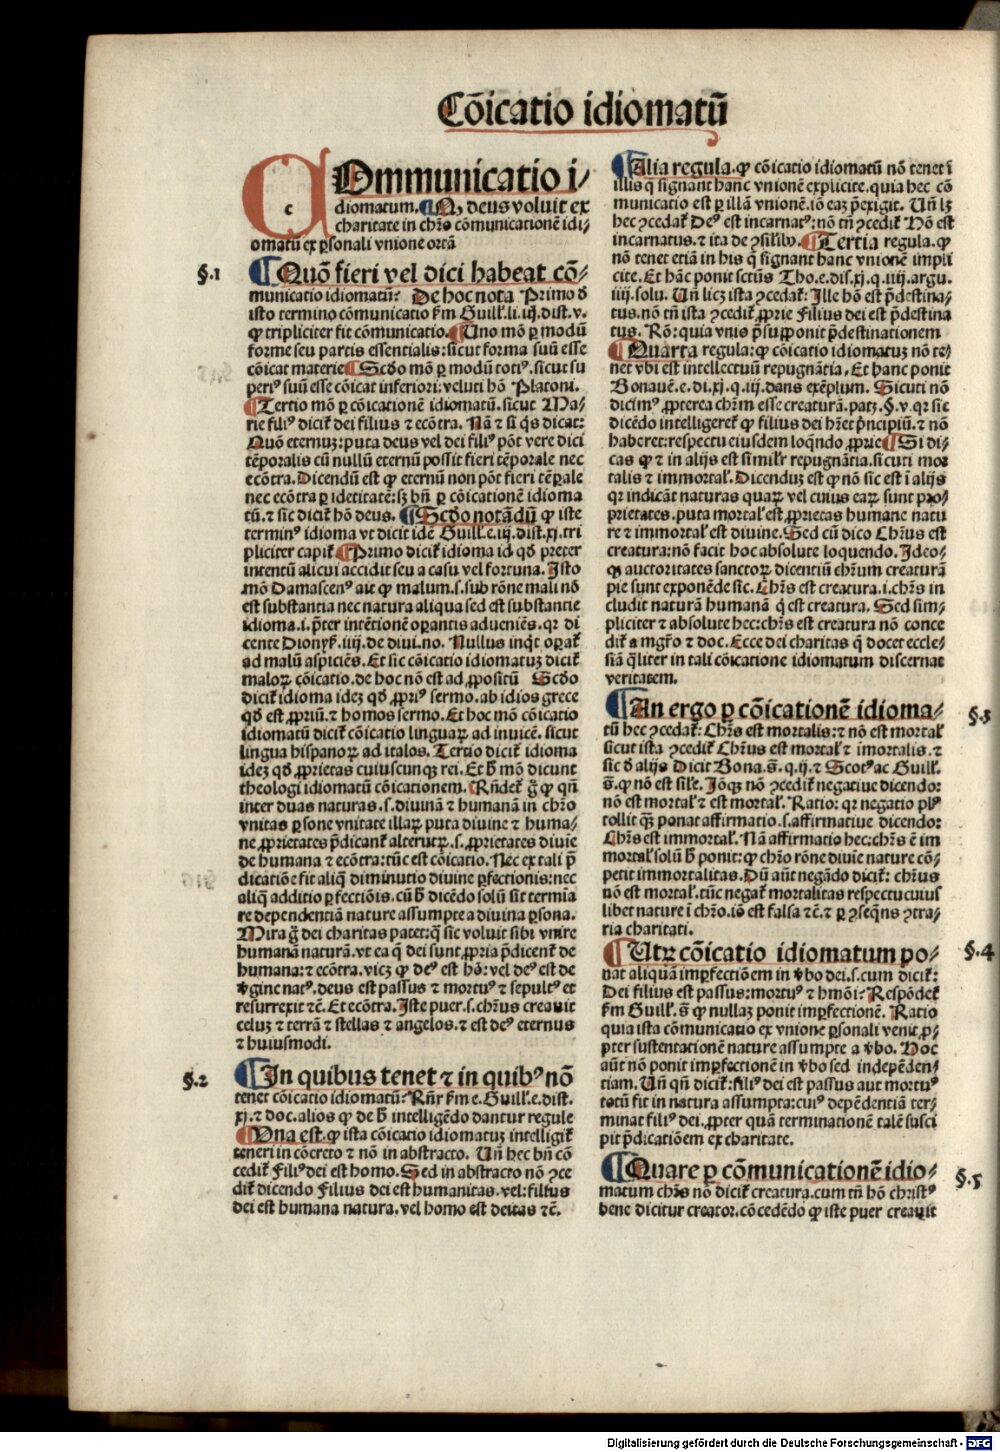 Cōicatio idiomatū
COmmunicatio i⸗
diomatum. ¶ Nꝫ deus voluit ex
charitate in chr̄o cōmunicationē idi⸗
omatū ex ꝑsonali vnione ortā
§.1
¶ Quō fieri vel dici habeat cō⸗
municatio idiomatū? De hoc nota Primo ꝺ
isto termino cōmunicatio ẜm Guill̓.li.iij.dist.v.
ꝙ tripliciter fit cōmunicatio. ¶ Uno mō ꝑ modū
forme seu partis essentialis: sicut forma suū esse
cōicat materie ¶ Scḋo mō ꝑ modū totiꝰ. sicut su
periꝰ suū esse cōicat inferiori: veluti hō Platoni.
¶ Tertio mō ꝑ cōicationē idiomatū. sicut Ma⸗
rie filiꝰ dicit̄ dei filius ⁊ ecōtra. Nā ⁊ si q̇s dicat:
Quō eternuꝫ: puta deus vel dei filiꝰ pōt vere dici
tēporalis cū nullū eternū possit fieri tēporale nec
ecōtra. Dicendū est ꝙ eternū non pōt fieri tēꝑale
nec ecōtra ꝑ idētitatē: sꝫ bn̄ ꝑ cōicationē idioma
tū. ⁊ sic dicit̄ hō deus. ¶ Scḋo notādū ꝙ iste
terminꝰ idioma vt dicit idē Guill̓.e.iij.dist.xj.tri
pliciter capit̄. ¶ Primo dicit̄ idioma id qḋ preter
intentū alicui accidit seu a casu vel fortuna. Isto
mō Damascenꝰ ait ꝙ malum.s.sub rōne mali nō
est substantia nec natura aliqua sed est substantie
idioma.i.p̄ter intētionē oꝑantis adueniēs. qꝛ di
cente Dionyẜ.iiij.de diui.no. Nullus inq̇t oꝑat̄
ad malū aspiciēs. Et sic cōicatio idiomatuꝫ dicit̄
maloꝝ cōicatio. de hoc nō est ad ꝓpositū Scḋo
dicit̄ idioma ideꝫ qḋ ꝓpriꝰ sermo. ab idios grece
qḋ est ꝓpriū. ⁊ homos sermo. Et hoc mō cōicatio
idiomatū dicit̄ cōicatio linguaꝝ ad inuicē. sicut
lingua hispanoꝝ ad italos. Tertio dicit̄ idioma
ideꝫ qḋ ꝓprietas cuiuscunqꝫ rei. Et ḣ mō dicunt
theologi idiomatū cōicationem. Rn̄det̄ g̊ ꝙ qn̄
inter duas naturas.s.diuinā ⁊ humanā in chr̄o
vnitas ꝑsone vnitate illaꝝ puta diuine ⁊ huma⸗
ne ꝓprietates p̄dicant̄ alterutꝝ.s.ꝓprietates diuīe
de humana ⁊ ecōtra: tūc est cōicatio. Nec ex tali p̄
dicatiōe fit aliq̄ diminutio diuine ꝑfectionis: nec
aliq̄ additio ꝑfectiōis. cū ḣ dicēdo solū sit termīa
re dependentiā nature assumpte a diuina ꝑsona.
Mira g̊ dei charitas patet: q̄ sic voluit sibi vnire
humanā naturā. vt ea q̄ dei sunt ꝓpria p̄dicent̄ de
humana: ⁊ ecōtra. vicꝫ ꝙ deꝰ est hō: vel deꝰ est de
v̓gine natꝰ. deus est passus ⁊ mortuꝰ ⁊ sepultꝰ et
resurrexit ⁊c̄. Et ecōtra. Iste puer.s.chr̄us creauit
celuꝫ ⁊ terrā ⁊ stellas ⁊ angelos. ⁊ est deꝰ eternus
⁊ huiusmodi.
§.2
¶ In quibus tenet ⁊ in quibꝰ nō
tenet cōicatio idiomatū? Rn̄r ẜm e.Guill̓.e.dist.
xj.⁊ doc.alios ꝙ de ḣ intelligēdo dantur regule
¶ Una est. ꝙ ista cōicatio idiomatuꝫ intelligit̄
teneri in cōcreto ⁊ nō in abstracto. Un̄ hec bn̄ cō
cedit̄ Filiꝰ dei est homo. Sed in abstracto nō ꝯce
dit̄ dicendo Filius dei est humanitas. vel: filius
dei est humana natura. vel homo est deitas ⁊c̄.
¶ Alia regula. ꝙ cōicatio idiomatū nō tenet ī
illis q̄ signant hanc vnionē explicite. quia hec cō
municatio est ꝑ illā vnionē. iō eaꝫ p̄exigit. Un̄ lꝫ
hec ꝯcedat̄ Deꝰ est incarnatꝰ: nō tn̄ ꝯcedit̄ Hō est
incarnatus. ⁊ ita de ꝯsilibꝰ. ¶ Tertia regula. ꝙ
nō tenet etiā in his q̄ signant hanc vnionē impli
cite. Et hāc ponit sctūs Tho.e.dis.xj.q.iiij.argu.
iiij.solu. Un̄ licꝫ ista ꝯcedat̄: Ille hō est p̄destina⸗
tus. nō tn̄ ista ꝯcedit̄ ꝓprie Filius dei est p̄destina
tus. Rō: quia vnio p̄supponit p̄destinationem
¶ Quarta regula: ꝙ cōicatio idiomatuꝫ nō te⸗
net vbi est intellectuū repugnātia. Et hanc ponit
Bonauē.e.di.xj.q.iij.dans exēplum. Sicuti nō
dicimꝰ ꝓpterea chr̄m esse creaturā. patꝫ.§.v. qꝛ sic
dicēdo intelligeret̄ ꝙ filius dei hr̄et p̄ncipiū. ⁊ nō
haberet: respectu eiusdem loq̄ndo ꝓprie ¶ Si di⸗
cas ꝙ ⁊ in alijs est simil̓r repugnātia. sicuti mor
talis ⁊ immortal̓. Dicenduꝫ est ꝙ nō sic est ī alijs
qꝛ indicāt naturas quaꝝ vel cuius eaꝝ sunt pro⸗
prietates. puta mortal̓ est ꝓprietas humane natu
re ⁊ immortal̓ est diuine. Sed cū dico Chr̄us est
creatura: nō facit hoc absolute loquendo. Ideo⸗
qꝫ auctoritates sanctoꝝ dicentiū chr̄um creaturā
pie sunt exponēde sic. Chr̄s est creatura.i.chr̄s in
cludit naturā humanā q̄ est creatura. Sed sim⸗
pliciter ⁊ absolute hec: chr̄s est creatura nō conce
dit̄ a mgr̄o ⁊ doc. Ecce dei charitas q̄ docet eccle⸗
siā q̄liter in tali cōicatione idiomatum discernat
veritatem.
§.3
¶ An ergo ꝑ cōicationē idioma⸗
tū hec ꝯcedat̄: Chr̄s est mortalis: ⁊ nō est mortal̓
sicut ista ꝯcedit̄ Chr̄us est mortal̓ ⁊ imortalis. ⁊
sic ꝺ alijs Dicit Bona.s̄.q.ij.⁊ Scotꝰ ac Guill̓.
s̄. ꝙ nō est sil̓e. Ioqꝫ nō ꝯcedit̄ negatiue dicendo:
nō est mortal̓ ⁊ est mortal̓. Ratio: qꝛ negatio plꝰ
tollit q̄ꝫ ponat affirmatio.s.affirmatiue dicendo:
Chr̄s est immortal̓. Nā affirmatio hec: chr̄s ē im
mortal̓ solū ḣ ponit: ꝙ chr̄o rōne diuīe nature cō⸗
petit immortalitas. Dū aūt negādo dicit̄: chr̄us
nō est mortal̓. tūc negat̄ mortalitas respectu cuius
libet nature ī chr̄o. iō est falsa ⁊c̄. ⁊ ꝑ ꝯseq̄ns ꝯtra⸗
ria charitati.
§.4
¶ Utꝝ cōicatio idiomatum po⸗
nat aliquā imꝑfectiōem in v̓bo dei.s.cum dicit̄:
Dei filius est passus: mortuꝰ ⁊ hmōi? Respōdet̄
ẜm Guill̓.s̄. ꝙ nullaꝫ ponit imꝑfectionē. Ratio
quia ista cōmunicatio ex vnione ꝑsonali venit ꝓ⸗
pter sustentationē nature assumpte a v̓bo. Hoc
aūt nō ponit imꝑfectionē in v̓bo sed independen⸗
tiam. Un̄ qn̄ dicit̄: filiꝰ dei est passus aut mortuꝰ
totū fit in natura assumpta: cuiꝰ depēdentiā ter⸗
minat filiꝰ dei. ꝓpter quā terminationē talē susci
pit p̄dicatiōem ex charitate.
§.5
¶ Quare ꝑ cōmunicationē idio⸗
matum chr̄s nō dicit̄ creatura. cum tn̄ hō christꝰ
bene dicitur creator. cōcedēdo ꝙ iste puer creauit
Digitalisierung gefördert durch die Deutsche Forschungsgemeinschaft - DFG